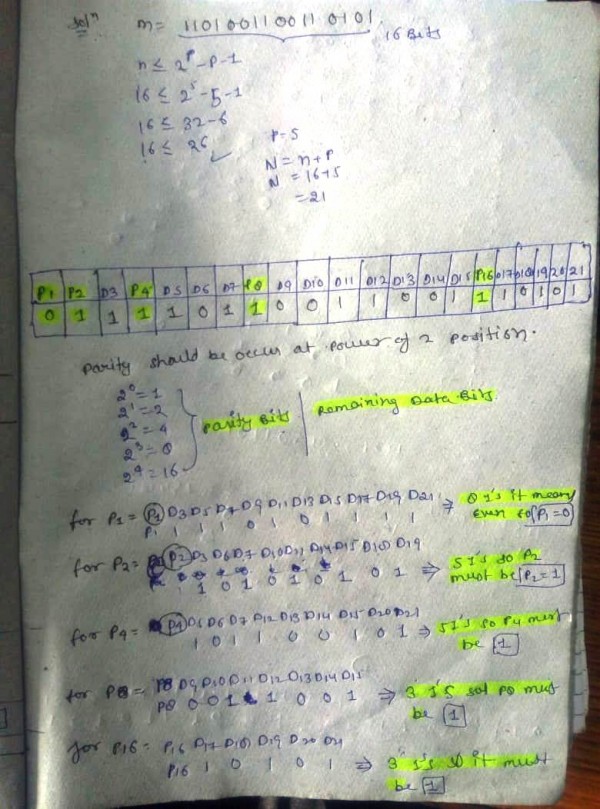 soln m = 1101001100110101 16 Bits
n ≤ 2^P - P - 1
16 ≤ 2^5 - 5 - 1
16 ≤ 32 - 6
16 ≤ 26 ✓
P = 5
N = n + P
N = 16 + 5
= 21
P1 P2 D3 P4 D5 D6 D7 P8 D9 D10 D11 D12 D13 D14 D15 P16 D17 D18 19 20 21
0 1 1 1 1 0 1 1 0 0 1 1 0 0 1 1 1 0 1 0 1
parity should be occur at power of 2 position.
2^0 = 1
2^1 = 2
2^2 = 4
2^3 = 8
2^4 = 16
parity Bits
Remaining Data Bits
for P1 = P1 D3 D5 D7 D9 D11 D13 D15 D17 D19 D21 ⇒ 8 1's it means
P1 1 1 1 0 1 0 1 1 1 1 even so P1 = 0
for P2 = P2 D3 D6 D7 D10 D11 D14 D15 D18 D19 5 1's so P2
1 0 1 0 1 0 1 0 1 ⇒ must be P2 = 1
for P4 = P4 D5 D6 D7 D12 D13 D14 D15 D20 D21
1 0 1 1 0 0 1 0 1 ⇒ 5 1's so P4 must
be 1
for P8 = P8 D9 D10 D11 D12 D13 D14 D15
P8 0 0 1 1 0 0 1 ⇒ 3 1's so P8 must
be 1
for P16 = P16 D17 D18 D19 D20 D21
P16 1 0 1 0 1 ⇒ 3 1's so it must
be 1